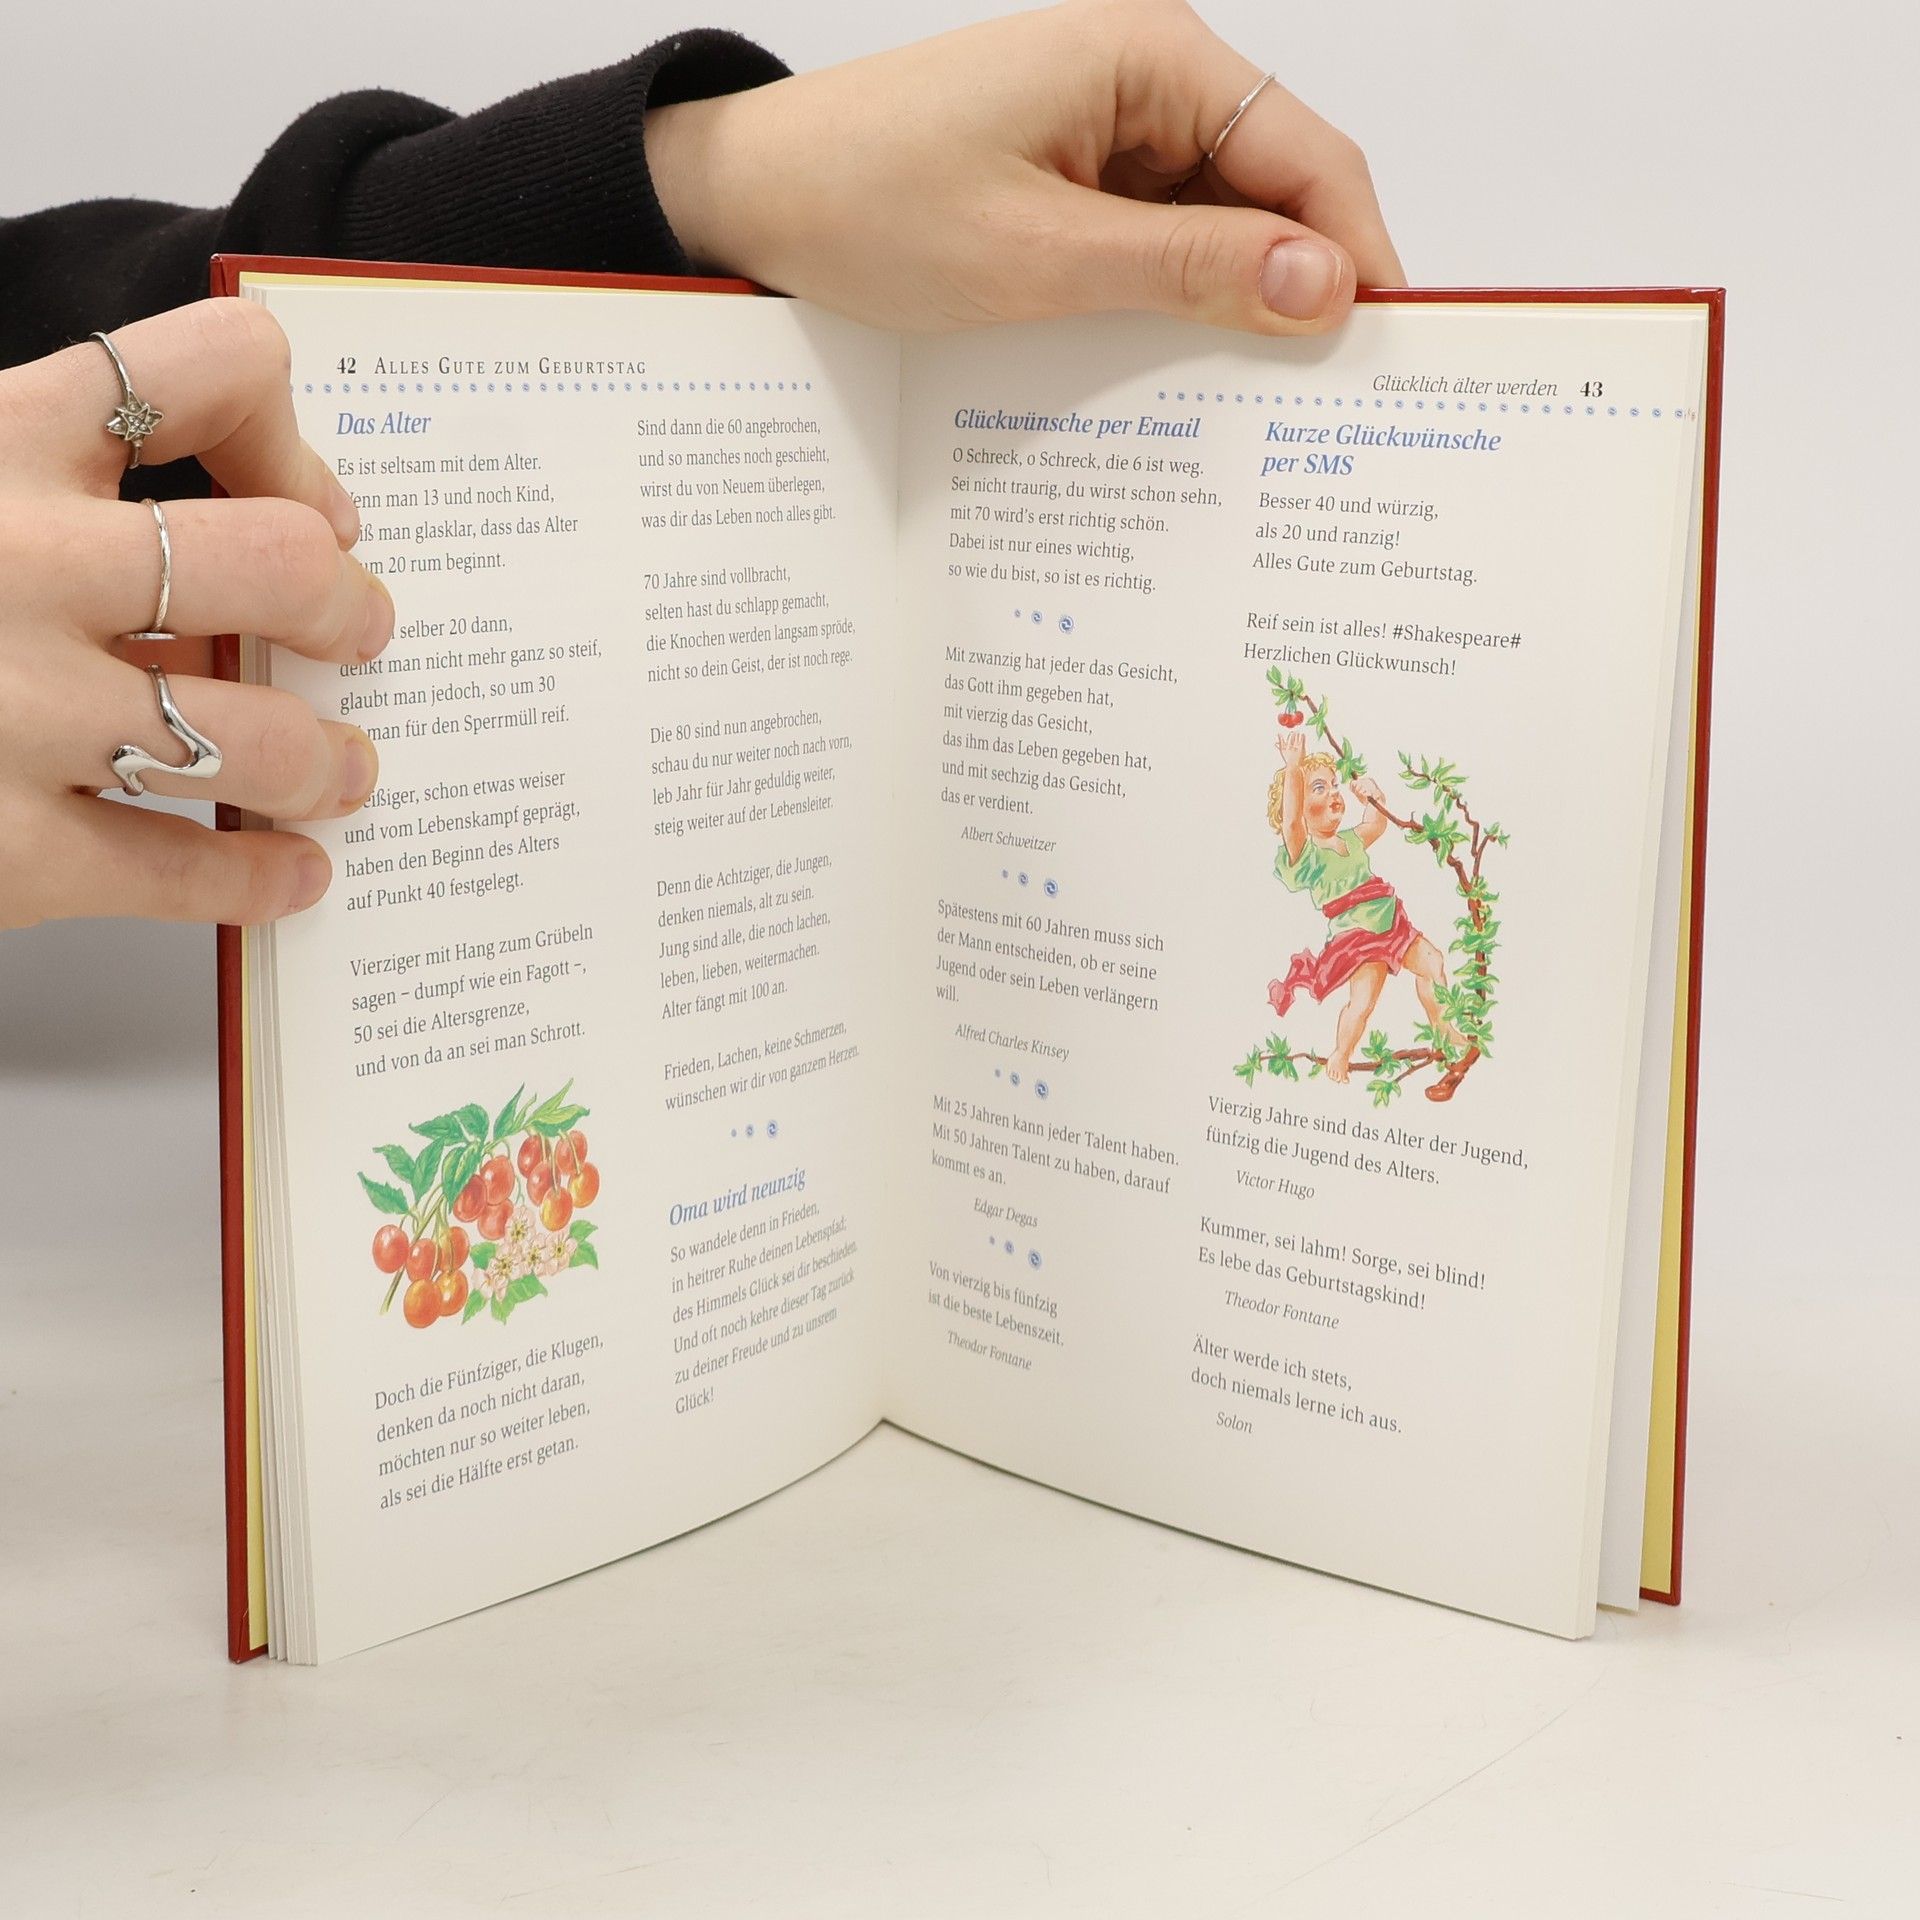 42 ALLES GUTE ZUM GEBURTSTAG
Das Alter
Es ist seltsam mit dem Alter.
man 13 und noch Kind,
man glasklar, dass das Alter
20 rum beginnt.
selber 20 dann,
denkt man nicht mehr ganz so steif,
glaubt man jedoch, so um 30
man für den Sperrmüll reif.
schon etwas weiser
und vom Lebenskampf geprägt,
haben den Beginn des Alters
auf Punkt 40 festgelegt.
Vierziger mit Hang zum Grübeln
sagen – dumpf wie ein Fagott –,
50 sei die Altersgrenze,
und von da an sei man Schrott.
Doch die Fünfziger, die Klugen,
denken da noch nicht daran,
möchten nur so weiter leben,
als sei die Hälfte erst getan.
Sind dann die 60 angebrochen,
und so manches noch geschieht,
wirst du von Neuem überlegen,
was dir das Leben noch alles gibt.
70 Jahre sind vollbracht,
selten hast du schlapp gemacht,
die Knochen werden langsam spröde,
nicht so dein Geist, der ist noch rege.
Die 80 sind nun angebrochen,
schau du nur weiter noch nach vorn,
leb Jahr für Jahr geduldig weiter,
steig weiter auf der Lebensleiter.
Denn die Achtziger, die Jungen,
denken niemals, alt zu sein.
Jung sind alle, die noch lachen,
leben, lieben, weitermachen.
Alter fängt mit 100 an.
Frieden, Lachen, keine Schmerzen,
wünschen wir dir von ganzem Herzen.
Oma wird neunzig
So wandele denn in Frieden,
in heitrer Ruhe deinen Lebenspfad;
des Himmels Glück sei dir beschieden.
Und oft noch kehre dieser Tag zurück
zu deiner Freude und zu unsrem
Glück!
Glücklich älter werden 43
Glückwünsche per Email
O Schreck, o Schreck, die 6 ist weg.
Sei nicht traurig, du wirst schon sehn,
mit 70 wird's erst richtig schön.
Dabei ist nur eines wichtig,
so wie du bist, so ist es richtig.
Mit zwanzig hat jeder das Gesicht,
das Gott ihm gegeben hat,
mit vierzig das Gesicht,
das ihm das Leben gegeben hat,
und mit sechzig das Gesicht,
das er verdient.
Albert Schweitzer
Spätestens mit 60 Jahren muss sich
der Mann entscheiden, ob er seine
Jugend oder sein Leben verlängern
will.
Alfred Charles Kinsey
Mit 25 Jahren kann jeder Talent haben.
Mit 50 Jahren Talent zu haben, darauf
kommt es an.
Edgar Degas
Von vierzig bis fünfzig
ist die beste Lebenszeit.
Theodor Fontane
Kurze Glückwünsche
per SMS
Besser 40 und würzig,
als 20 und ranzig!
Alles Gute zum Geburtstag.
Reif sein ist alles! #Shakespeare#
Herzlichen Glückwunsch!
Vierzig Jahre sind das Alter der Jugend,
fünfzig die Jugend des Alters.
Victor Hugo
Kummer, sei lahm! Sorge, sei blind!
Es lebe das Geburtstagskind!
Theodor Fontane
Älter werde ich stets,
doch niemals lerne ich aus.
Solon